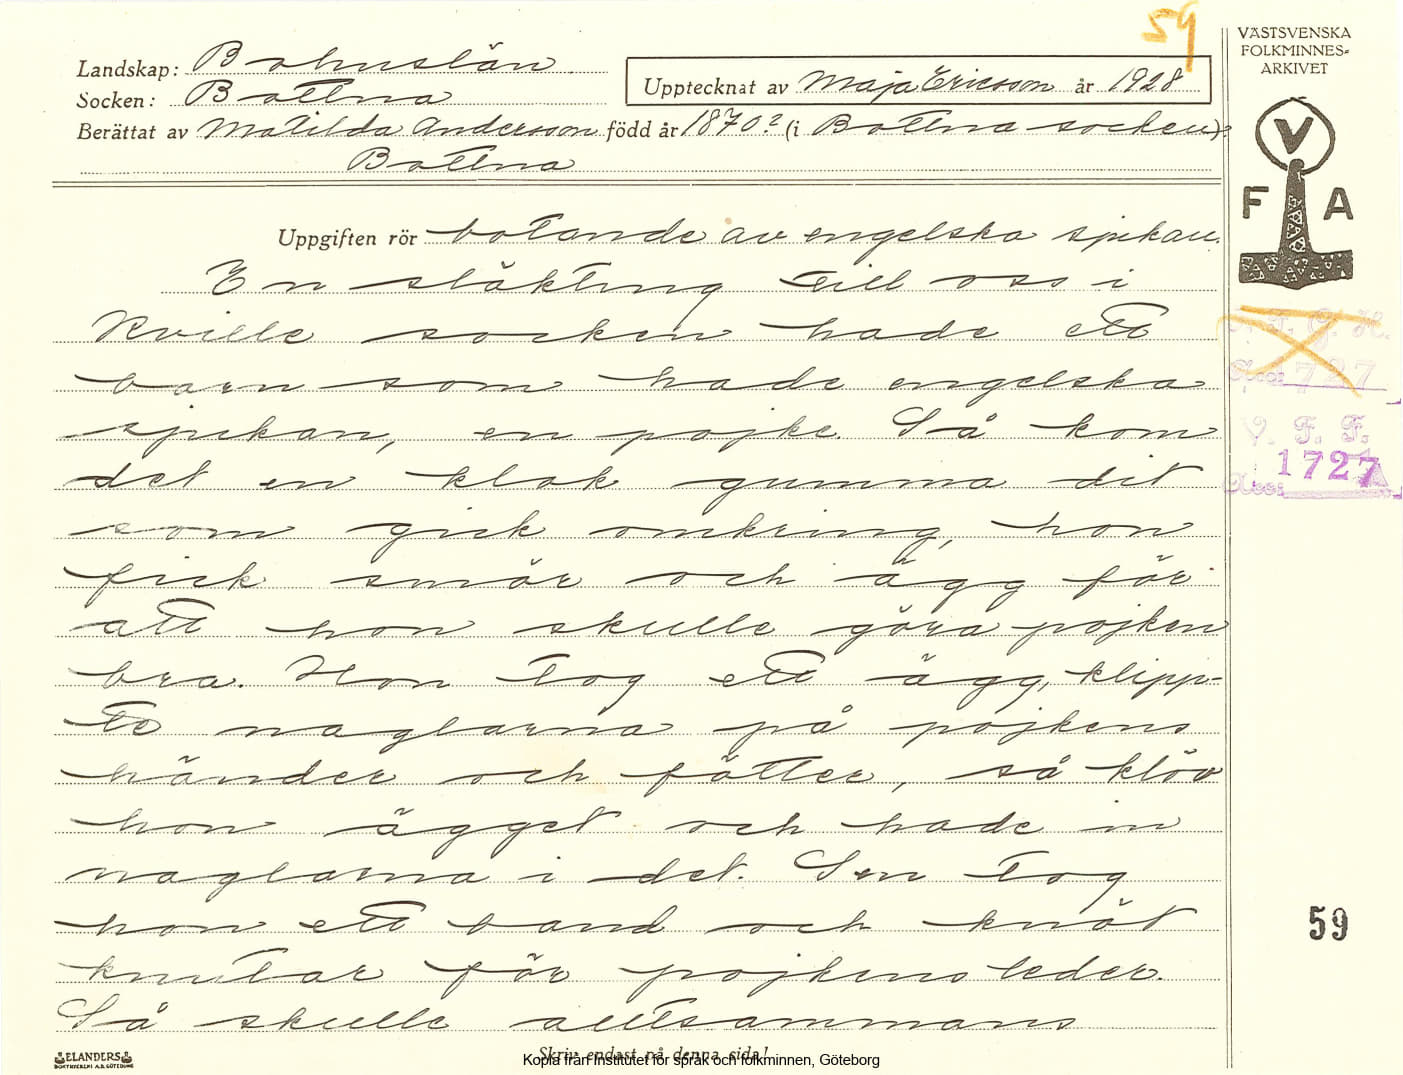 59
VÄSTSVENSKA
FOLKMINNES=
ARKIVET
Landskap: Bohuslän
Socken: Bottna
Upptecknat av Maja Ericsson år 1928
Berättat av Matilda Andersson född år 1870? (i Bottna socken).
Bottna
V
F A
Uppgiften rör botande av engelska spikan.
En släkting till oss i
Kville socken hade ett
barn som hade engelska
spikan, en pojke. Så kom
det en klok gumma dit
som gick omkring, hon
fick smör och ägg för
att hon skulle göra pojken
bra. Hon tog ett ägg, klipp-
te naglarna på pojkens
händer och fötter, så klöv
hon ägget och hade in
naglarna i det. Sen tog
hon ett band och knöt
knutar för pojkens leder.
Så skulle alltsammans
727
V. F. F.
Acc: 1727
59
Skriv endast på denna sida!
Kopia från Institutet för språk och folkminnen, Göteborg
ELANDERS
BOKTRYCKERI A.B. GÖTEBORG